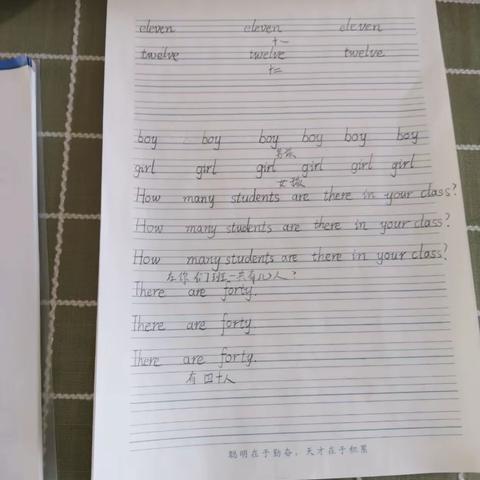 eleven eleven eleven
十一
twelve twelve twelve
十二
boy boy boy boy boy boy
男孩
girl girl girl girl girl girl
女孩
How many students are there in your class?
How many students are there in your class?
How many students are there in your class?
在你们班一共有几人?
There are forty.
There are forty.
There are forty.
有四十人
聪明在于勤奋，天才在于积累